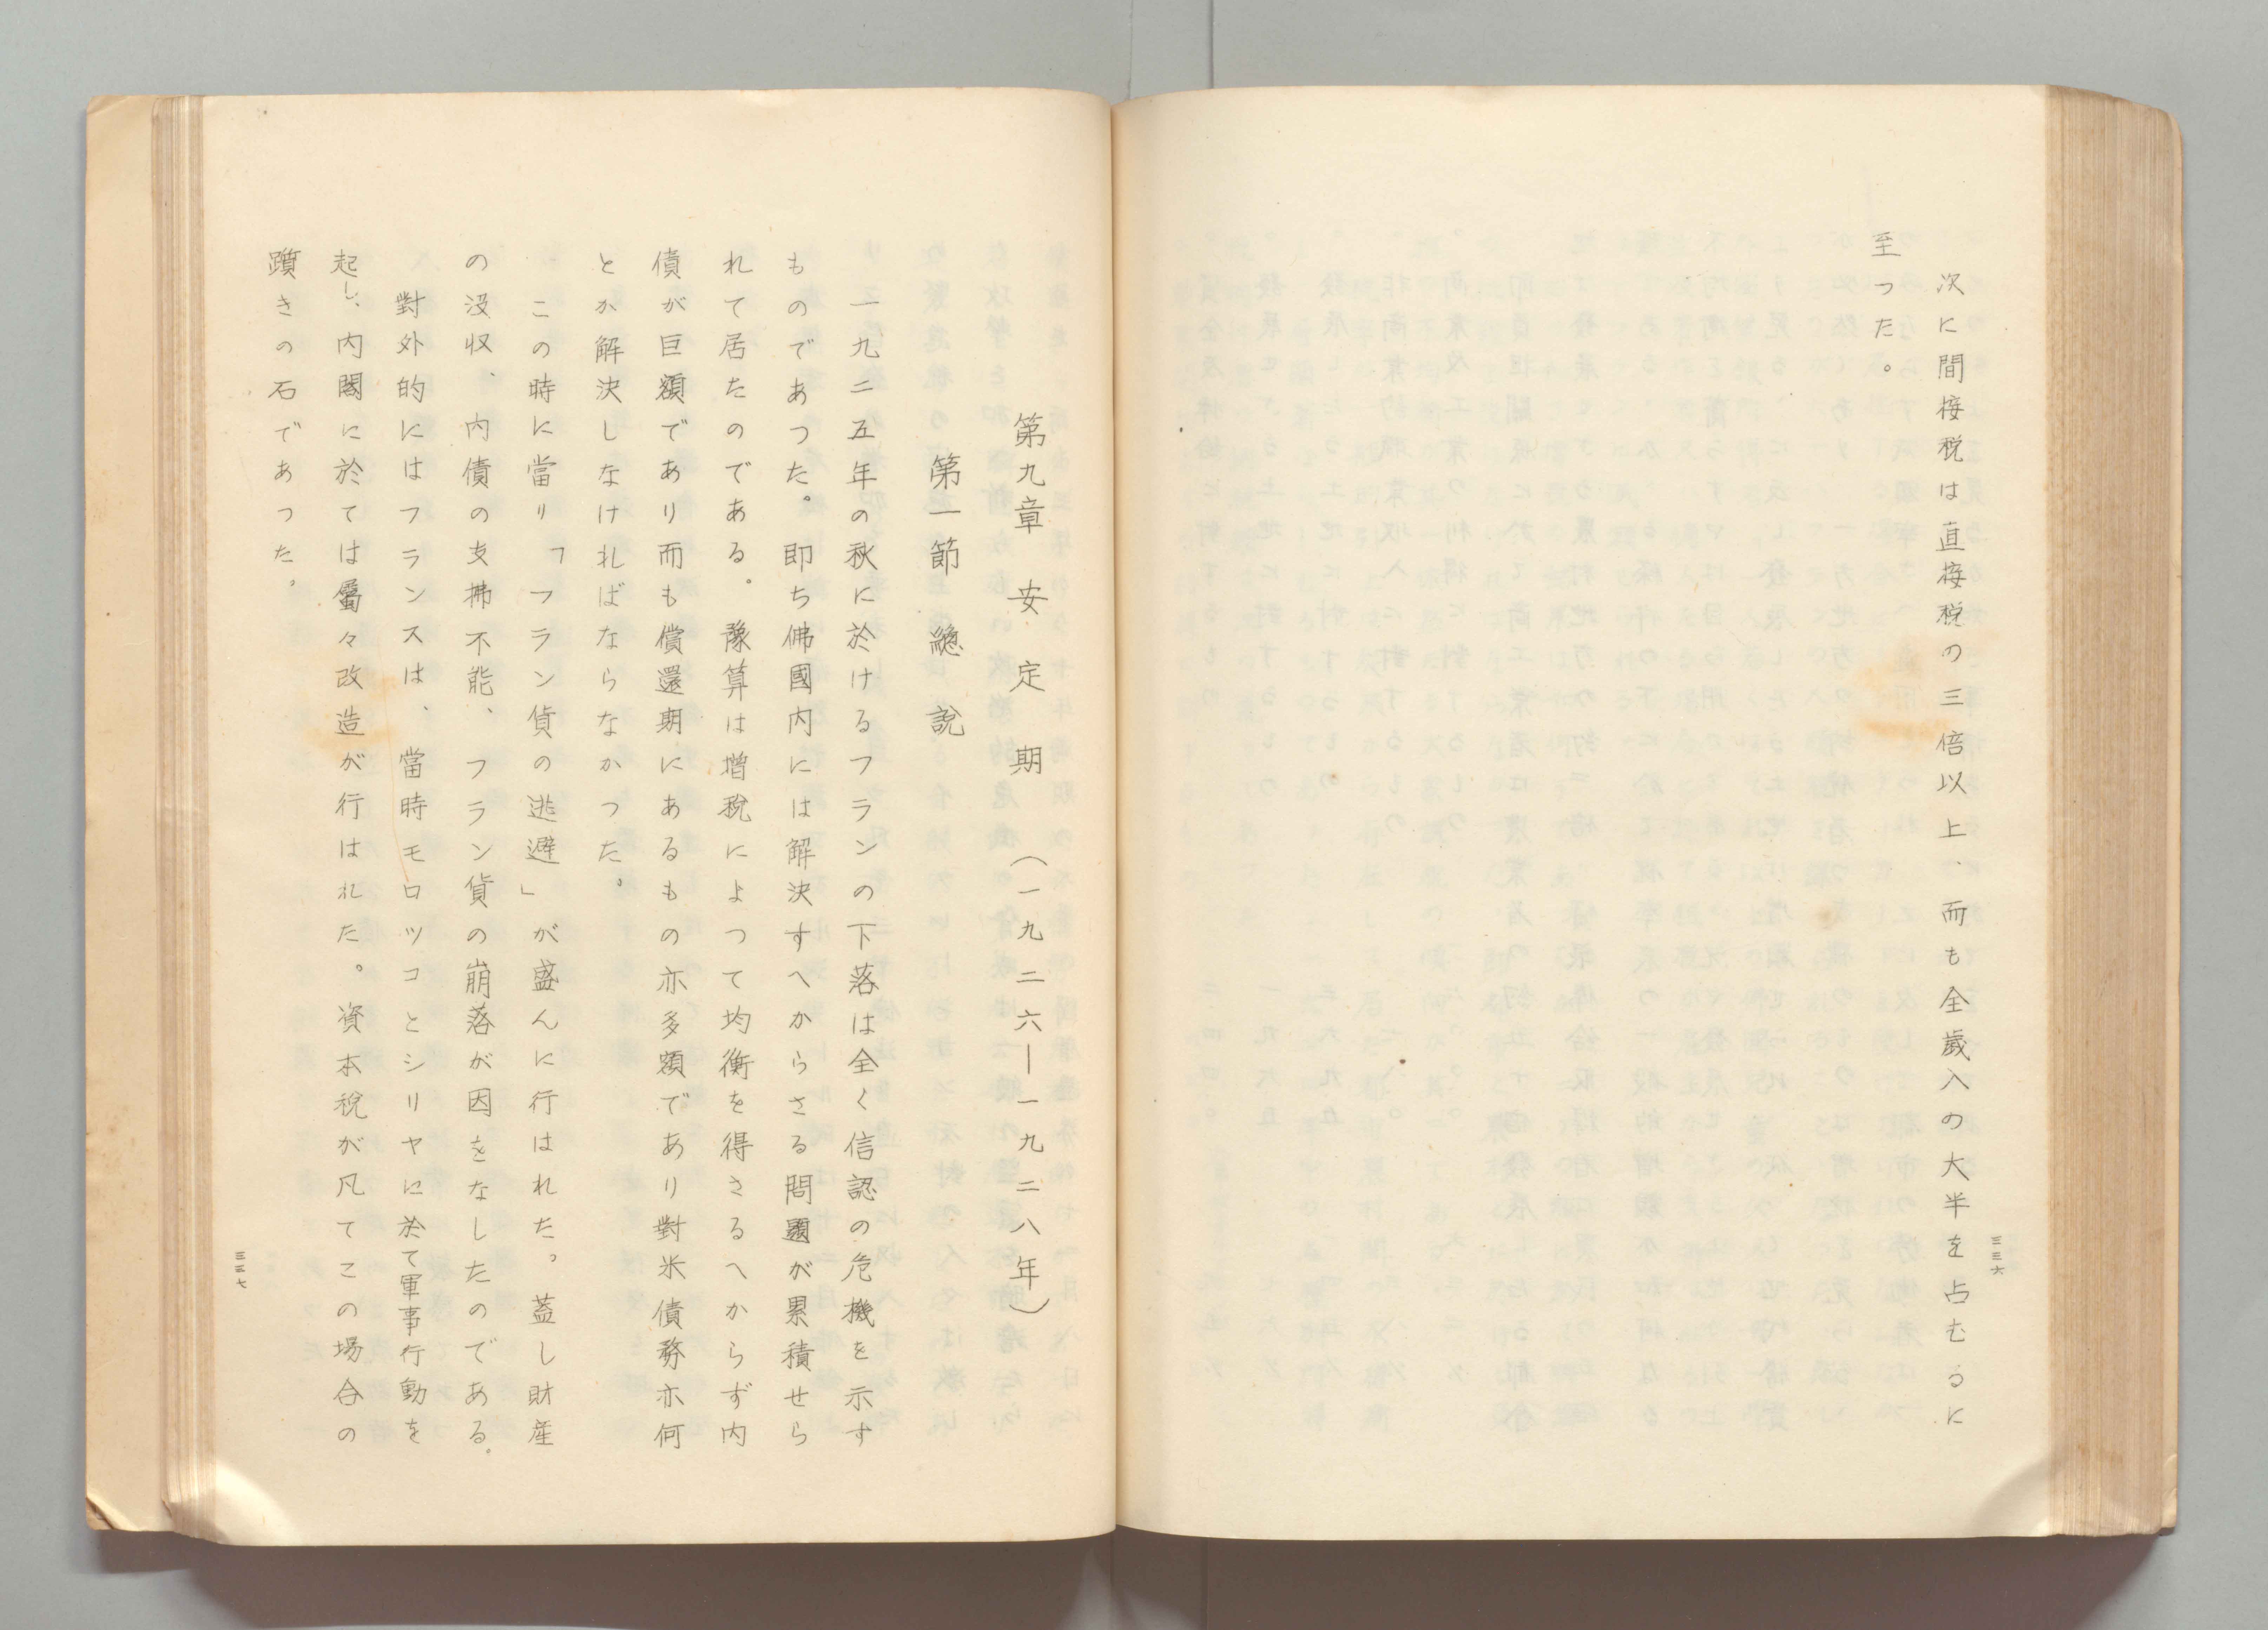 次に間接税は直接税の三倍以上、而も全歳入の大半を占むるに
至った。
三三六
第九章　安定期　（一九二六―一九二八年）
第一節　總說
一九二五年の秋に於けるフランの下落は全く信認の危機を示す
ものであつた。即ち佛國内には解決すへからさる問題が累積せら
れて居たのである。豫算は増税によつて均衡を得さるへからず内
債が巨額であり而も償還期にあるもの亦多額であり對米債務亦何
とか解決しなければならなかつた。
この時に當り「フラン貨の逃避」が盛んに行はれた。蓋し財産
の没収、内債の支拂不能、フラン貨の崩落が因をなしたのである。
對外的にはフランスは、當時モロツコとシリヤに於て軍事行動を
起し、内閣に於ては屡々改造が行はれた。資本税が凡てこの場合の
躓きの石であつた。
三三七